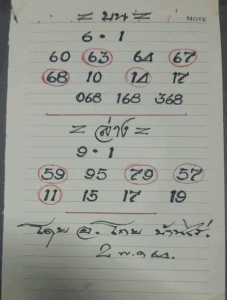 = บน =
NOTE
6 · 1
60 63 64 67
68 10 14 17
068 168 368
= ล่าง =
9 · 1
59 95 79 57
11 15 17 19
โดย อ. โกย บ้านไร่.
2 พ.ค 64.